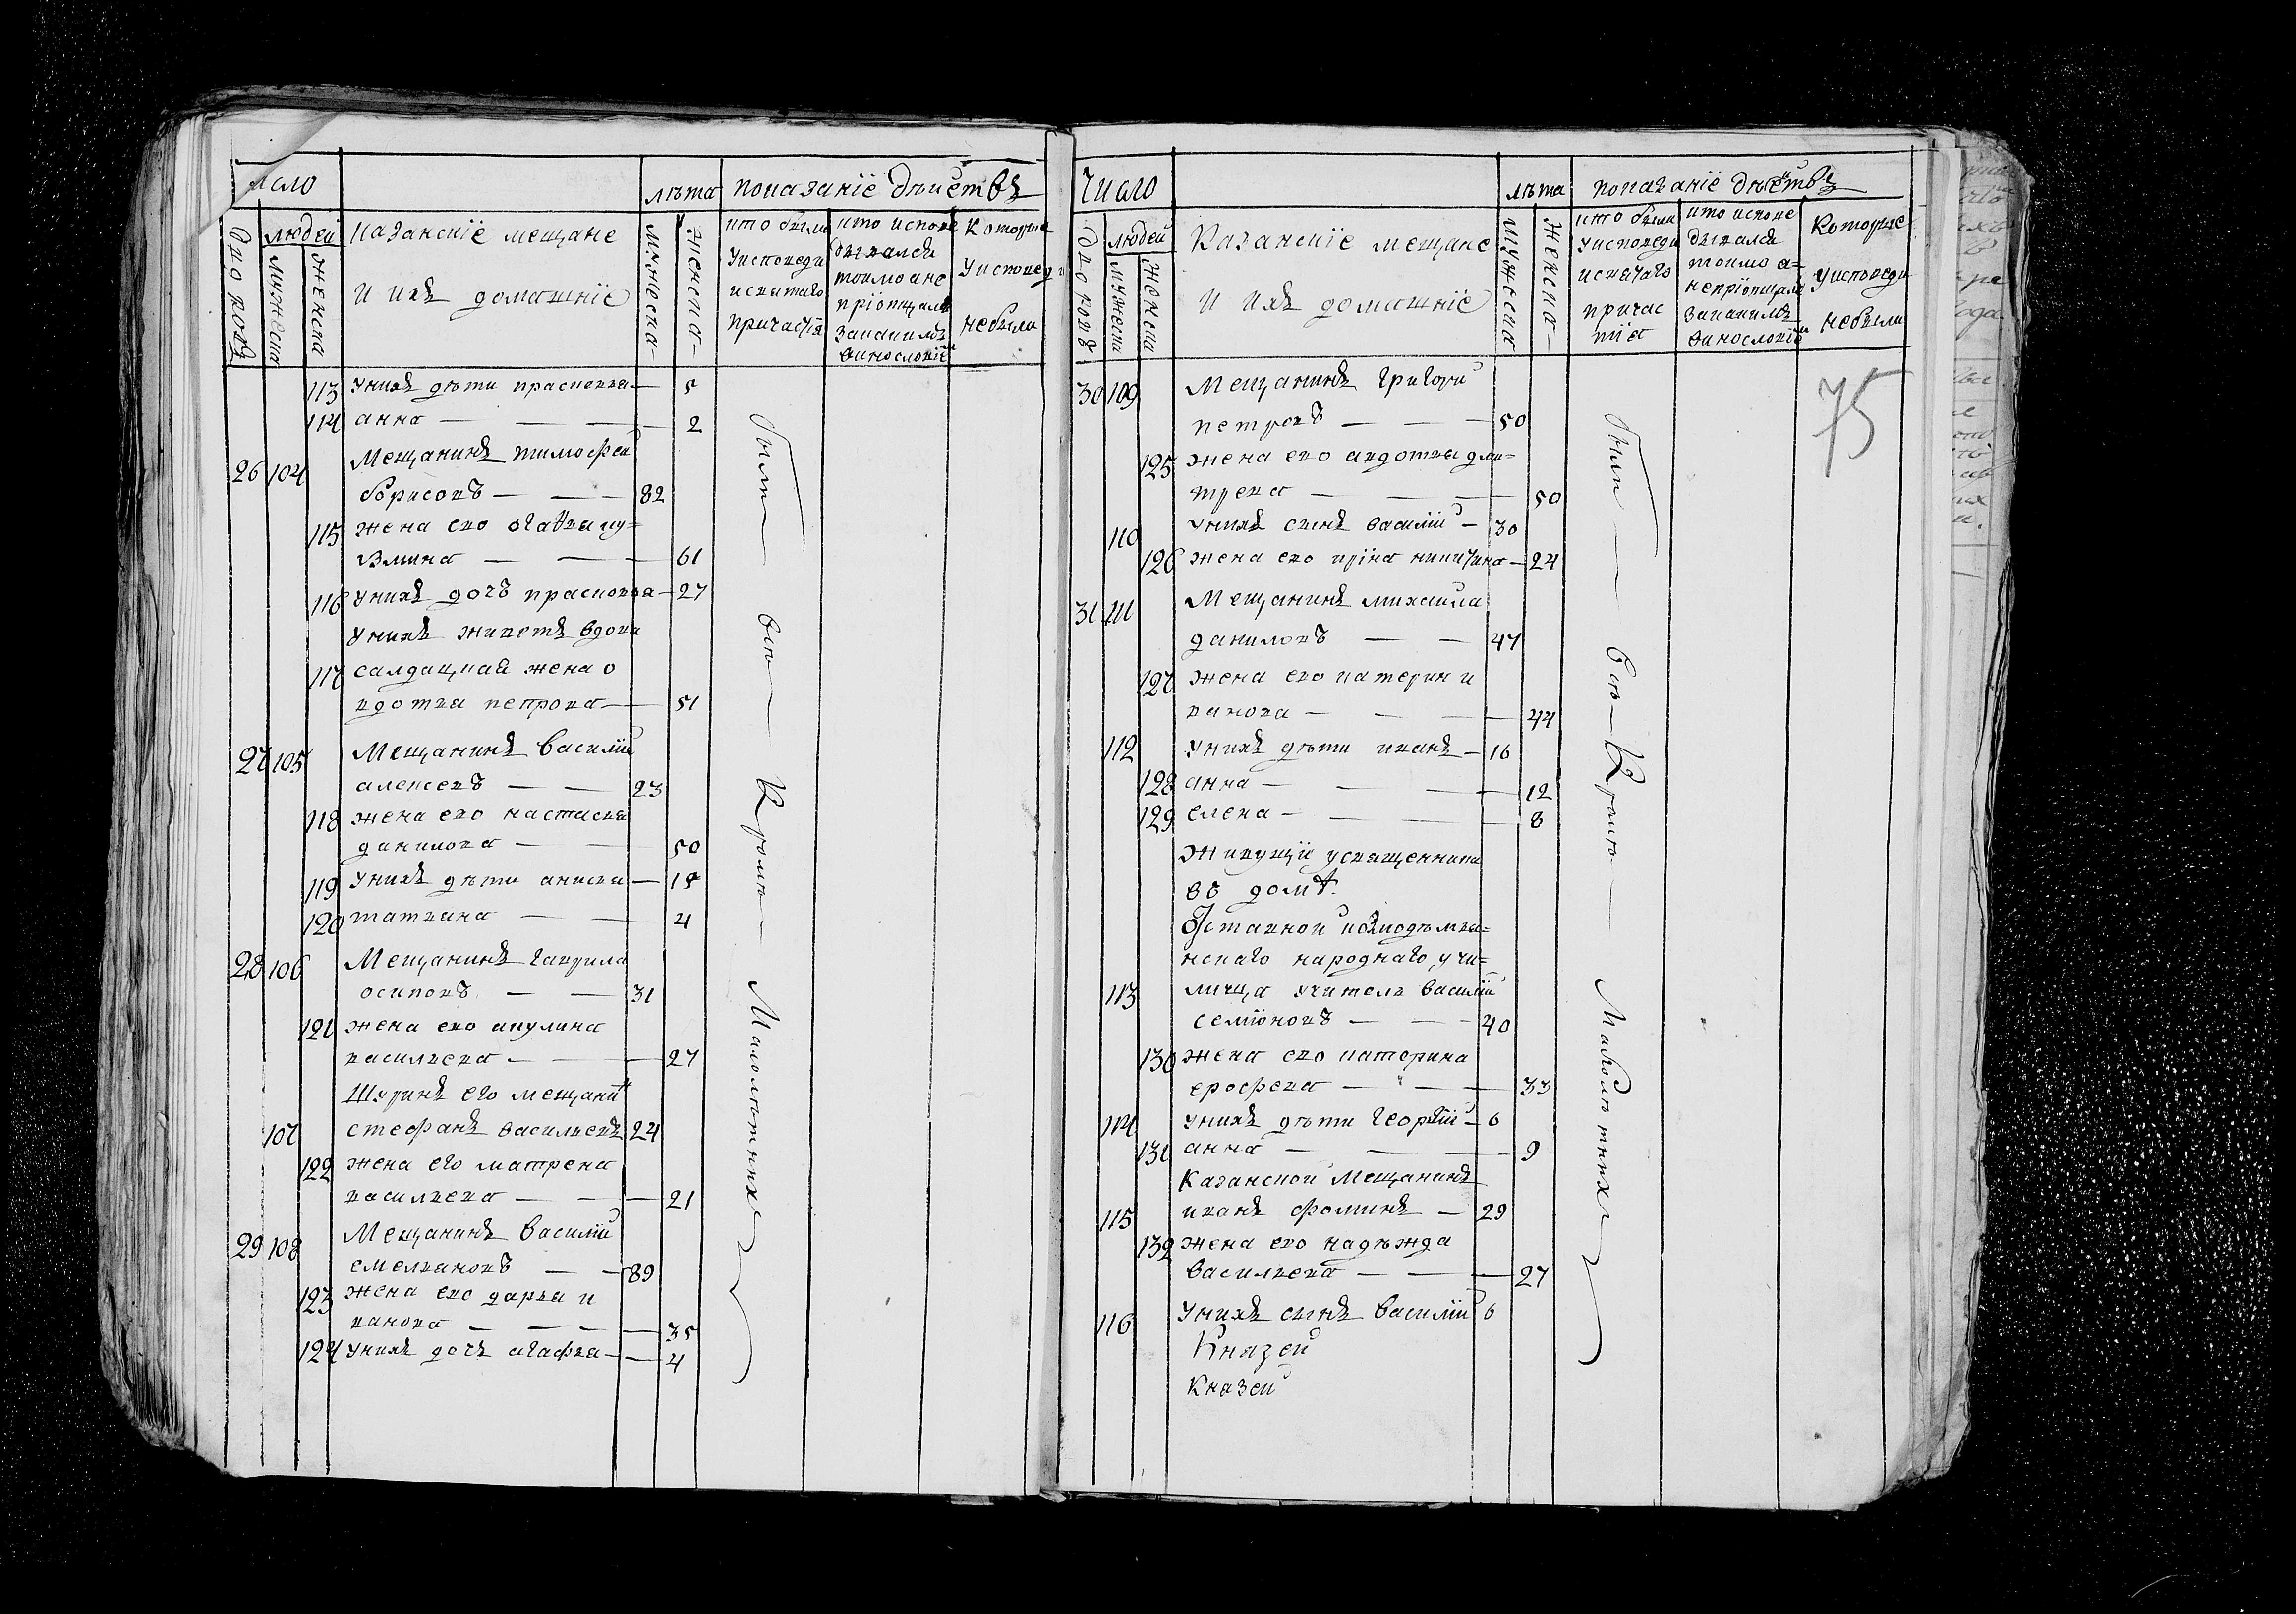 число
лѣта показанїе дѣйствъ
дворовъ
людей
мужеска
женска
казанскїе мещане
и ихъ домашнїе
мужеска
женска
кто были у исповеди и святаго причастїя
кто исповедывался токмо а не прїобщался за какимъ винословїем
которые у исповеди не были
113 у нихъ дѣти прасковья — 5
114 анна — — — 2
26 104 Мещанинъ тимофей
борисовъ — — 82
115 жена его агафья ку=
змина — — 61
116 у нихъ дочь прасковья — 27
у нихъ живетъ вдова
117 салдацкая жена о
вдотья петрова — 51
27 105 Мещанинъ василїй
алексевъ — — 23
118 жена его настасья
данилова — — 50
119 у нихъ дѣти анисья — 15
120 татьяна — — 4
28 106 Мещанинъ гаврила
осиповъ — — 31
121 жена его акулина
васильева — — 27
Шуринъ его мещани
107 стефанъ васильевъ 24
122 жена его матрена
васильева — — 21
29 108 Мещанинъ василїй
емельяновъ — — 89
123 жена его дарья и
ванова — — — 35
124 у нихъ дочь агафья — 4
были — всѣ — Кромѣ — Малолѣтнихъ
Число
лѣта показанїе дѣйствъ
дворовъ
людей
мужеска
женска
Казанскїе мещане
и ихъ домашнїе
мужеска
женска
кто были у исповеди и святаго причастїя
кто исповедывался токмо а= не прїобщался за какимъ винословїем
Которые у исповеди не были
75
30 109 Мещанинъ григорий
петровъ — — 50
125 жена его авдотья дми=
трева — — 50
110 у нихъ сынъ василїй — 30
126 жена его ирїна никитина — 24
31 111 Мещанинъ михаила
даниловъ — — 47
127 жена его катерин и
ванова — — 44
112 у нихъ дѣти иванъ — 16
128 анна — — — 12
129 елена — — — 8
Живущїи у священника
въ домѣ.
Оставной козмодемья=
нскаго народнаго учи=
113 лища учитель василїй
семїоновъ — — 40
130 жена его катерина
ерофева — — 33
114 у нихъ дѣти георгїй — 6
131 анна — — 9
Казанской мещанинъ
115 иванъ фоминъ — 29
132 жена его надѣжда
васильева — — 27
116 у нихъ сынъ василїй 6
Князей
князей
были — всѣ — Кромѣ — Малолѣтнихъ